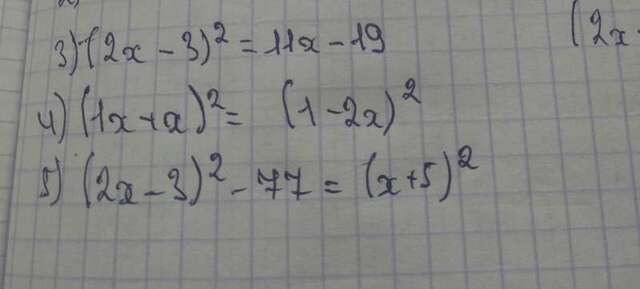 (2x
3) (2x - 3)² = 11x - 19
4) (1x + x)² = (1 - 2x)²
5) (2x - 3)² - 77 = (x + 5)²